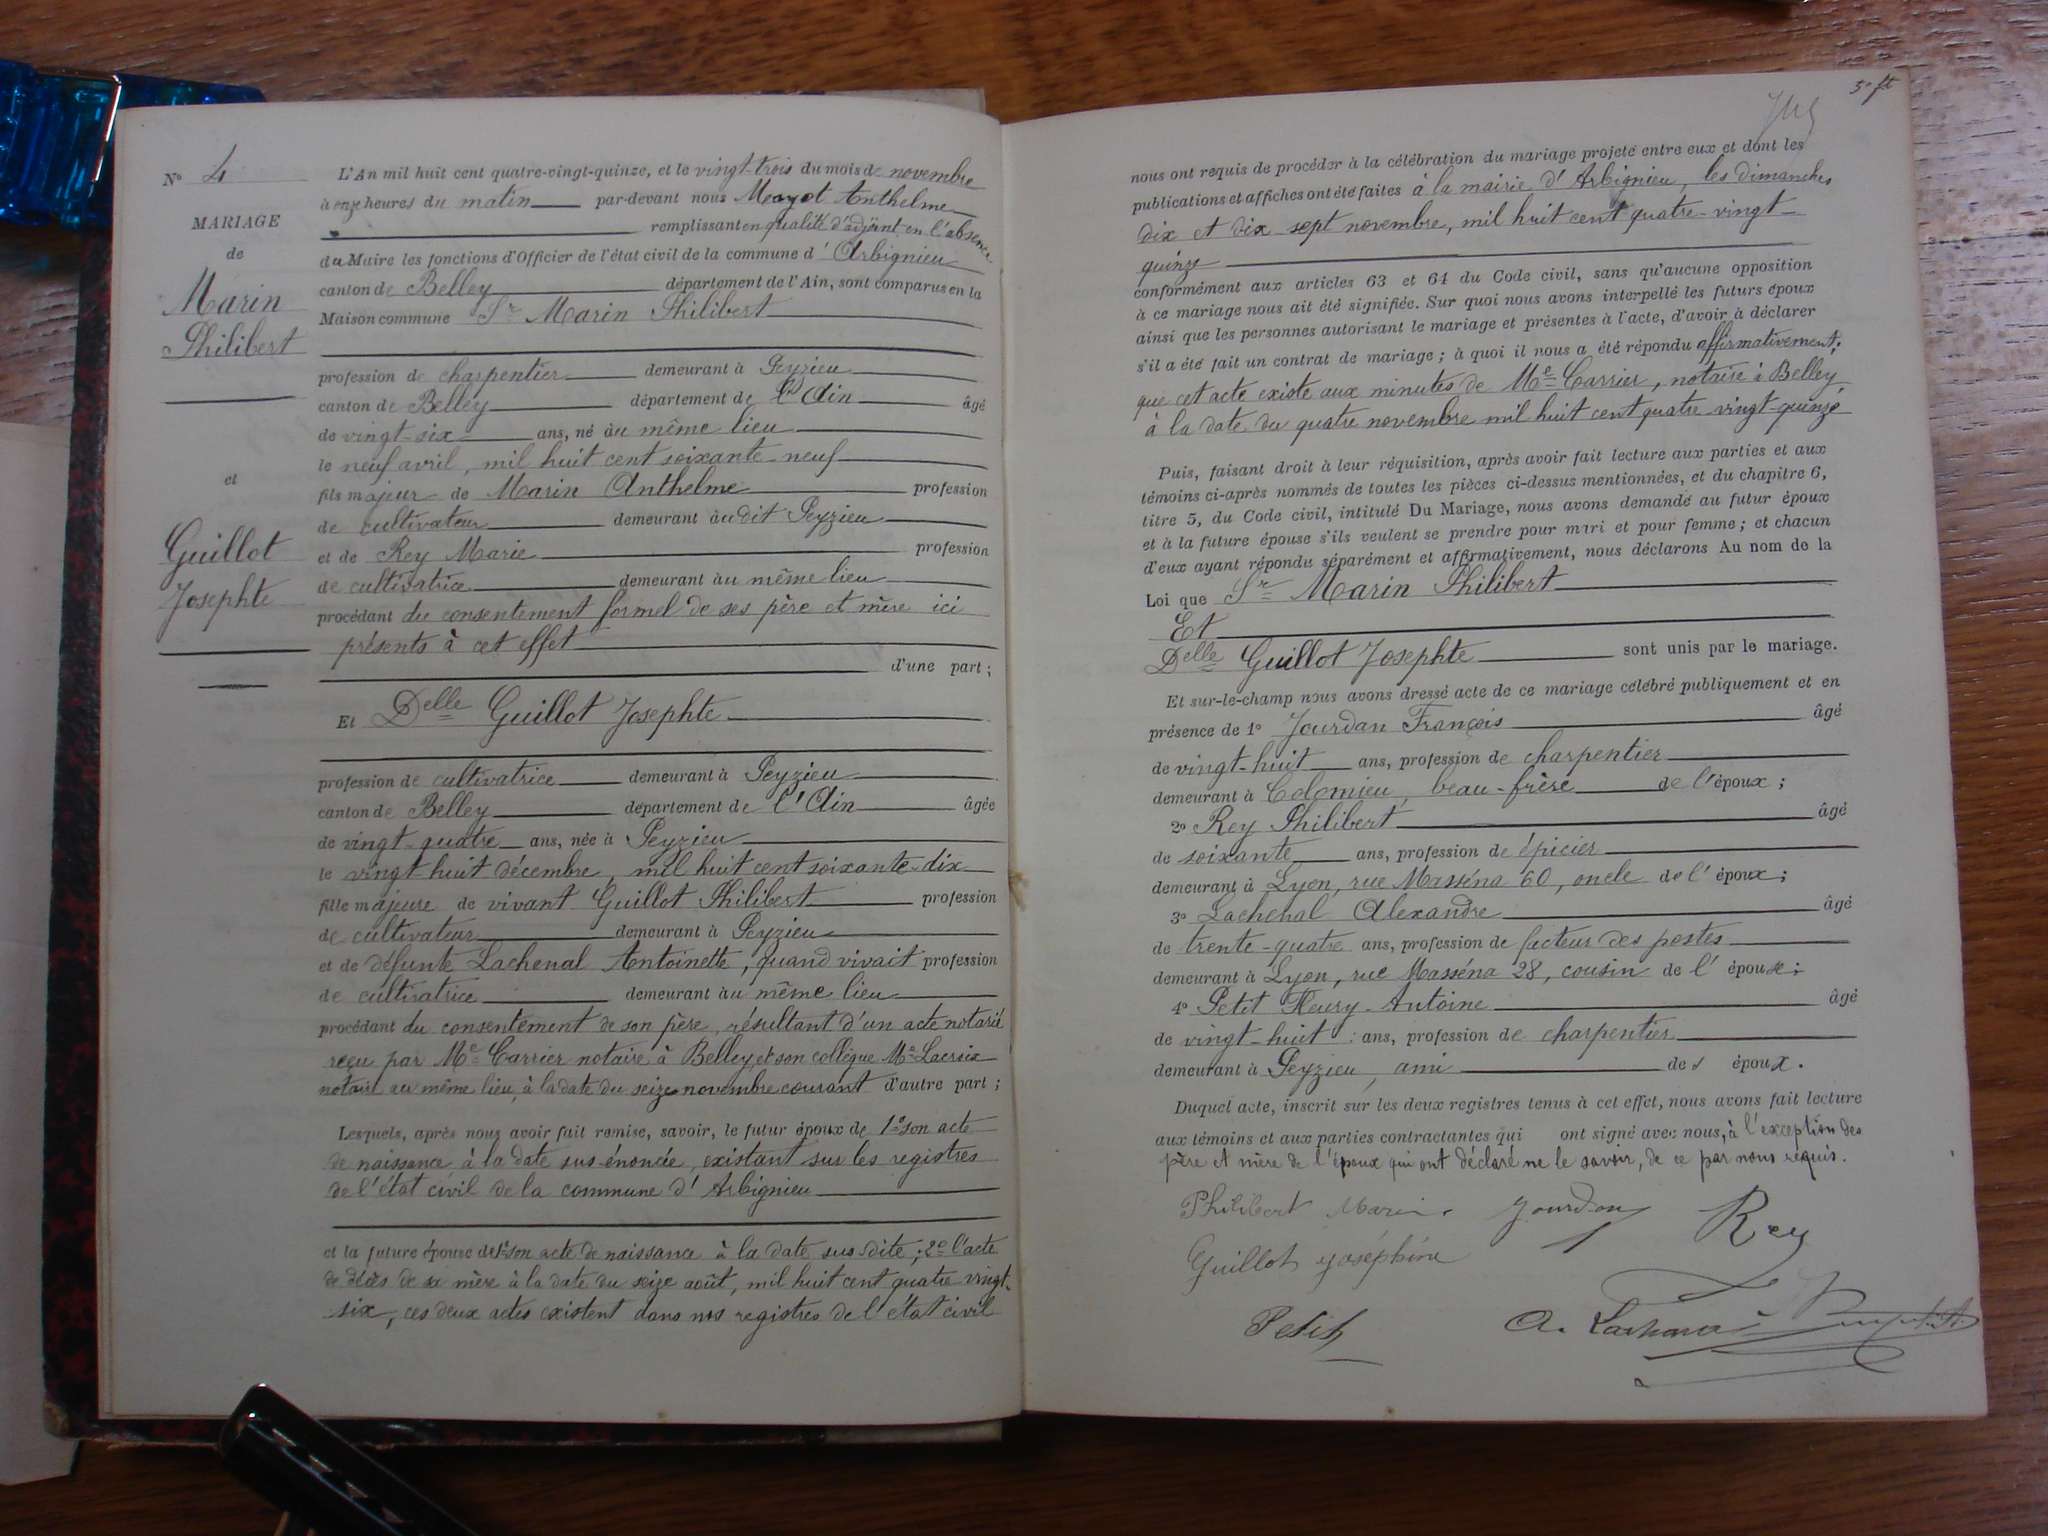 N° 4
MARIAGE
de
Marin
Philibert
et
Guillot
Josephte
L'An mil huit cent quatre-vingt-quinze, et le vingt-trois du mois de novembre
à onze heures du matin par-devant nous Mayot Anthelme
remplissant en qualité d'adjoint en l'absence
du Maire les fonctions d'Officier de l'état civil de la commune d' Arbignieu
canton de Belley département de l'Ain, sont comparus en la
Maison commune Sr Marin Philibert
profession de charpentier demeurant à Peyzieu
canton de Belley département de l'Ain âgé
de vingt-six ans, né au même lieu
le neuf avril, mil huit cent soixante-neuf
fils majeur de Marin Anthelme profession
de cultivateur demeurant audit Peyzieu
et de Rey Marie profession
de cultivatrice demeurant au même lieu
procédant du consentement formel de ses père et mère ici
présents à cet effet
d'une part ;
Et Delle Guillot Josephte
profession de cultivatrice demeurant à Peyzieu
canton de Belley département de l'Ain âgée
de vingt-quatre ans, née à Peyzieu
le vingt huit décembre, mil huit cent soixante-dix
fille majeure de vivant Guillot Philibert profession
de cultivateur demeurant à Peyzieu
et de défunte Lachenal Antoinette, quand vivait profession
de cultivatrice demeurant au même lieu
procédant du consentement de son père, résultant d'un acte notarié
reçu par Me Carrier notaire à Belley, et son collègue Me Lacroix
notaire au même lieu, à la date du seize novembre courant d'autre part ;
Lesquels, après nous avoir fait remise, savoir, le futur époux de 1° son acte
de naissance à la date sus-énoncée, existant sur les registres
de l'état civil de la commune d' Arbignieu
et la future épouse de 1° son acte de naissance à la date sus-dite ; 2° l'acte
de décès de sa mère à la date du seize août, mil huit cent quatre vingt-
six, ces deux actes existent dans nos registres de l'état civil
nous ont requis de procéder à la célébration du mariage projeté entre eux et dont les
publications et affiches ont été faites à la mairie d' Arbignieu, les dimanches
dix et dix-sept novembre, mil huit cent quatre-vingt-
quinze
conformément aux articles 63 et 64 du Code civil, sans qu'aucune opposition
à ce mariage nous ait été signifiée. Sur quoi nous avons interpellé les futurs époux
ainsi que les personnes autorisant le mariage et présentes à l'acte, d'avoir à déclarer
s'il a été fait un contrat de mariage ; à quoi il nous a été répondu affirmativement,
que cet acte existe aux minutes de Me Carrier, notaire à Belley,
à la date du quatre novembre mil huit cent quatre vingt-quinze
Puis, faisant droit à leur réquisition, après avoir fait lecture aux parties et aux
témoins ci-après nommés de toutes les pièces ci-dessus mentionnées, et du chapitre 6,
titre 5, du Code civil, intitulé Du Mariage, nous avons demandé au futur époux
et à la future épouse s'ils veulent se prendre pour mari et pour femme ; et chacun
d'eux ayant répondu séparément et affirmativement, nous déclarons Au nom de la
Loi que Sr Marin Philibert
Et
Delle Guillot Josephte sont unis par le mariage.
Et sur-le-champ nous avons dressé acte de ce mariage célébré publiquement et en
présence de 1° Jourdan François âgé
de vingt-huit ans, profession de charpentier
demeurant à Colomieu, beau-frère de l'époux ;
2° Rey Philibert âgé
de soixante ans, profession de épicier
demeurant à Lyon, rue Masséna 60, oncle de l'époux ;
3° Lachenal Alexandre âgé
de trente-quatre ans, profession de facteur des postes
demeurant à Lyon, rue Masséna 28, cousin de l'épouse ;
4° Petit Fleury-Antoine âgé
de vingt-huit ans, profession de charpentier
demeurant à Peyzieu, ami des époux.
Duquel acte, inscrit sur les deux registres tenus à cet effet, nous avons fait lecture
aux témoins et aux parties contractantes qui ont signé avec nous, à l'exception des
père et mère de l'époux qui ont déclaré ne le savoir, de ce par nous requis.
Philibert Marin Jourdan Rey
Guillot Joséphine
Petit A. Lachenal